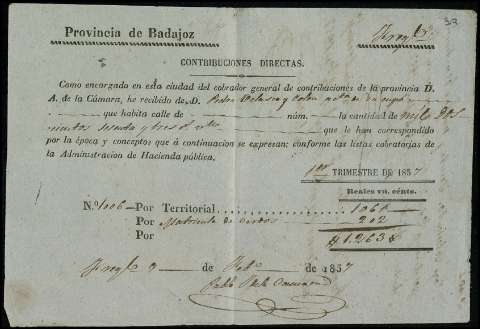 32
Provincia de Badajoz
CONTRIBUCIONES DIRECTAS.
Como encargado en esta ciudad del cobrador general de contribuciones de la provincia D.
A. de la Cámara, he recibido de D. Pedro
que habita calle de núm. la cantidad de mil dos
cientos sesenta y tres r.s vn. que le han correspondido
por la época y conceptos que á continuacion se expresan: conforme las listas cobratorias de
la Administracion de Hacienda pública.
1er TRIMESTRE DE 1857
Reales vn. cénts.
N.º 1006 Por Territorial 1061
Por 202
Por # 1.263 #
de de 1857
Pablo